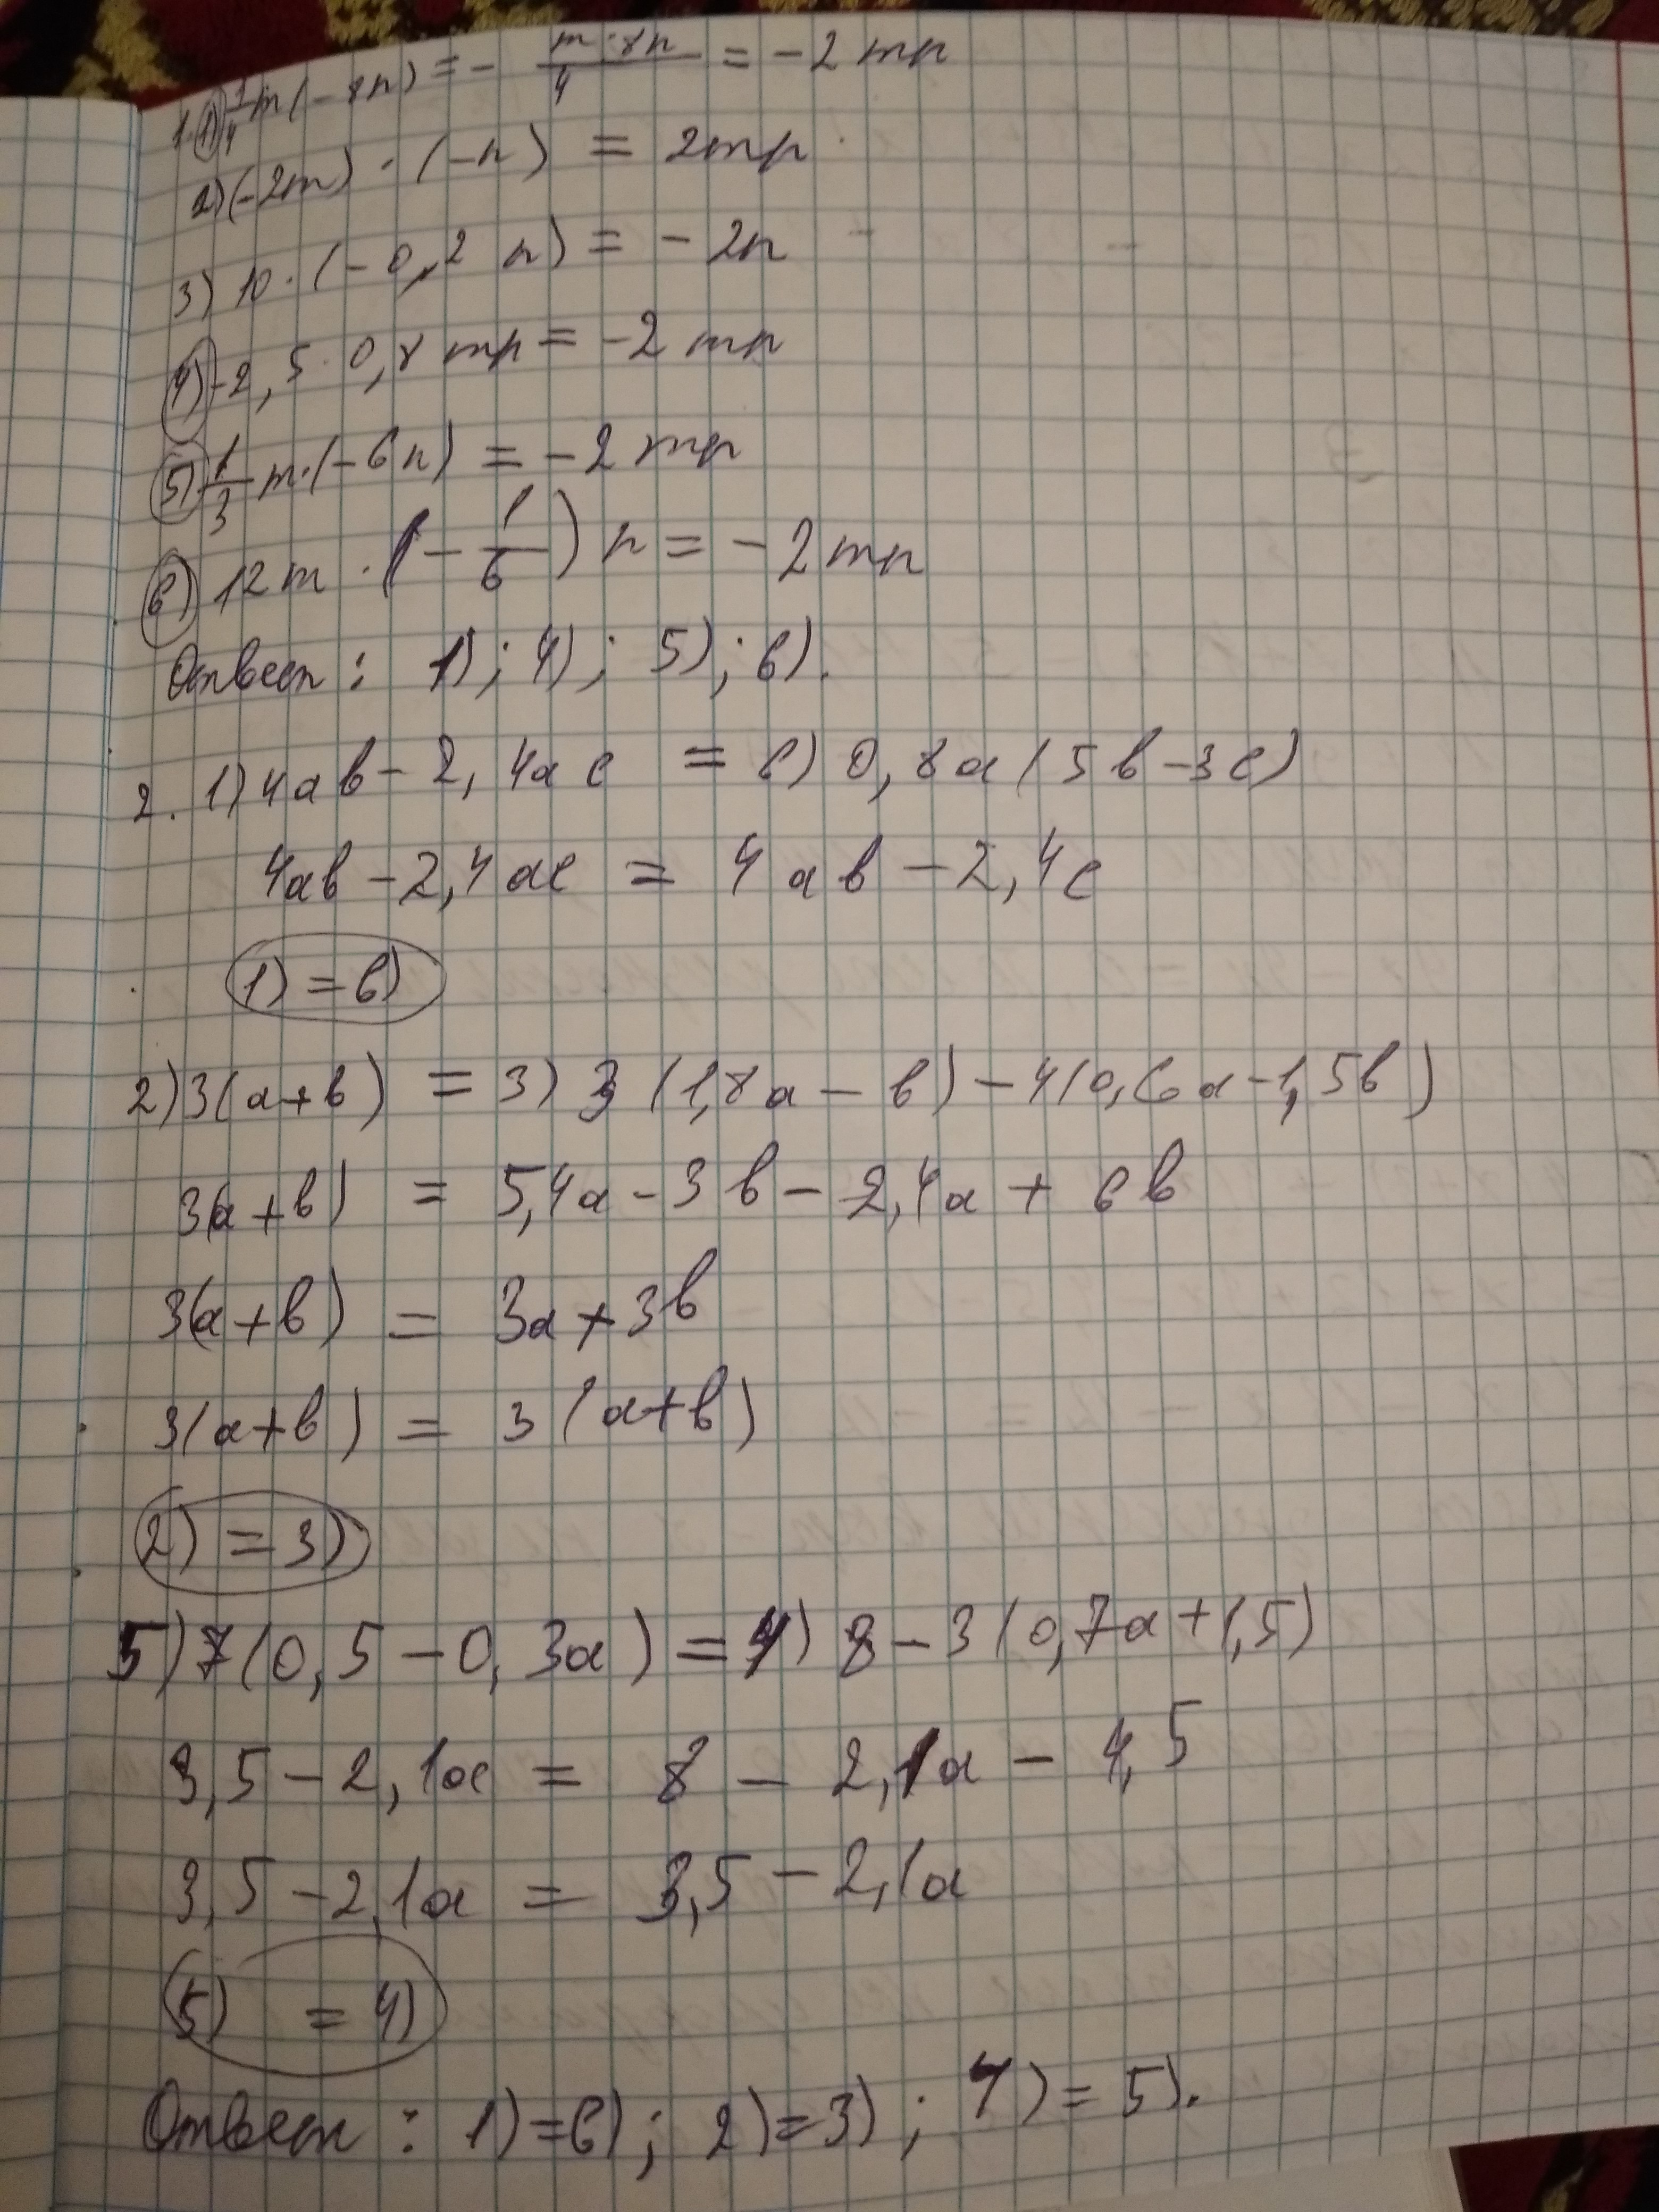 1. 1) 1/4 m(-8n) = - m·8n/4 = -2mn
2) (-2m)·(-n) = 2mn
3) 10·(-0,2 n) = -2n
4) -2,5·0,8mn = -2mn
5) 1/3 m·(-6n) = -2mn
6) 12m·(-1/6)n = -2mn
Ответ: 1); 4); 5); 6).
2. 1) 4ab - 2,4ac = 6) 0,8a(5b-3c)
4ab - 2,4ac = 4ab - 2,4c
1) = 6)
2) 3(a+b) = 3) 3(1,8a - b) - 4(0,6a-1,5b)
3(a+b) = 5,4a - 3b - 2,4a + 6b
3(a+b) = 3a+3b
3(a+b) = 3(a+b)
2) = 3)
5) 7(0,5-0,3a) = 4) 8-3(0,7a+1,5)
3,5-2,1a = 8 - 2,1a - 4,5
3,5-2,1a = 3,5-2,1a
5) = 4)
Ответ: 1)=6); 2)=3); 4)=5).